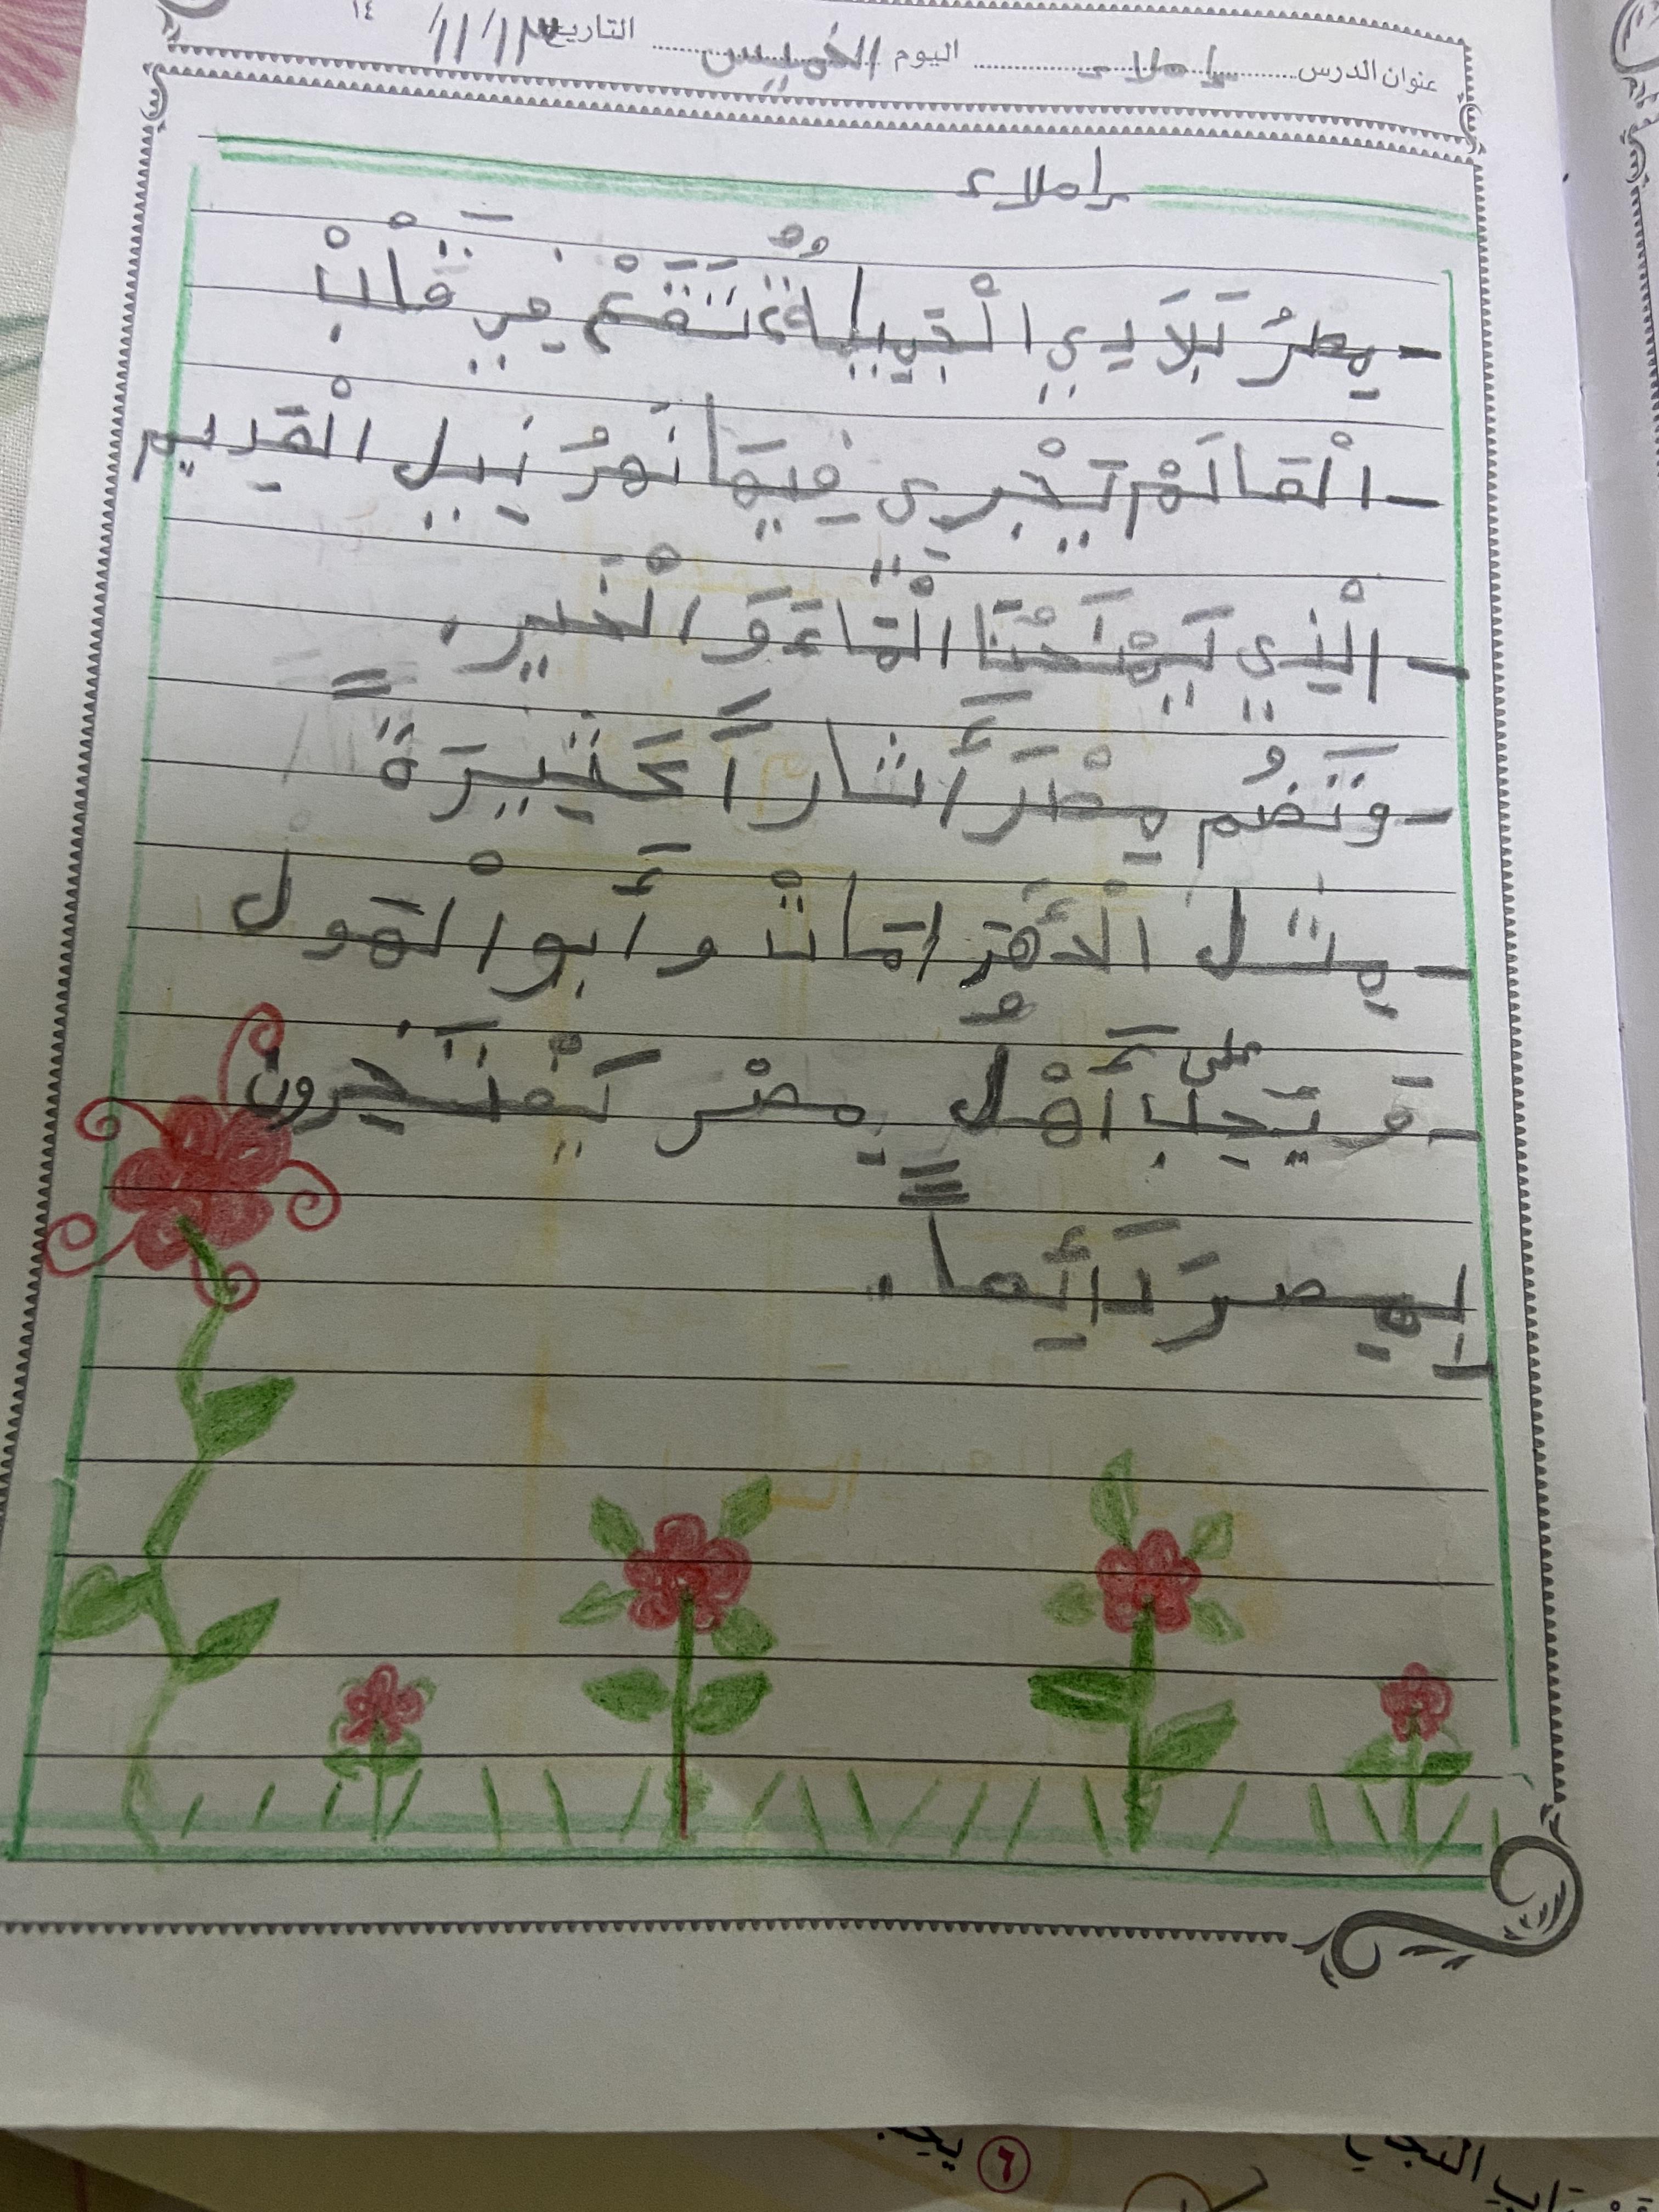 ١٤
عنوان الدرس إملاء اليوم الخميس التاريخ ١١/١٣/
إملاء
- مِصرُ بَلاَدِي الْجَمِيلِةُ تَقَعْ فِي قَلْبْ
- الْقَالَمْ تَجْرِي فِيهَا نَهرُ نِيل الْقَديم
- الْذِي يَمْنَحُنَا الْمَاءَ وَ الْخَير.
- وَتَضُم مِصْرَ أَثاراً كَثِيرَةً
- مِثل الْأَهرَامَاتْ و أَبو الْهَول
- وَ يَحِب على أَهْلُ مِصْر يَفْتَخِرون
لِمِصرَ دَائِماً .
٦ يجب